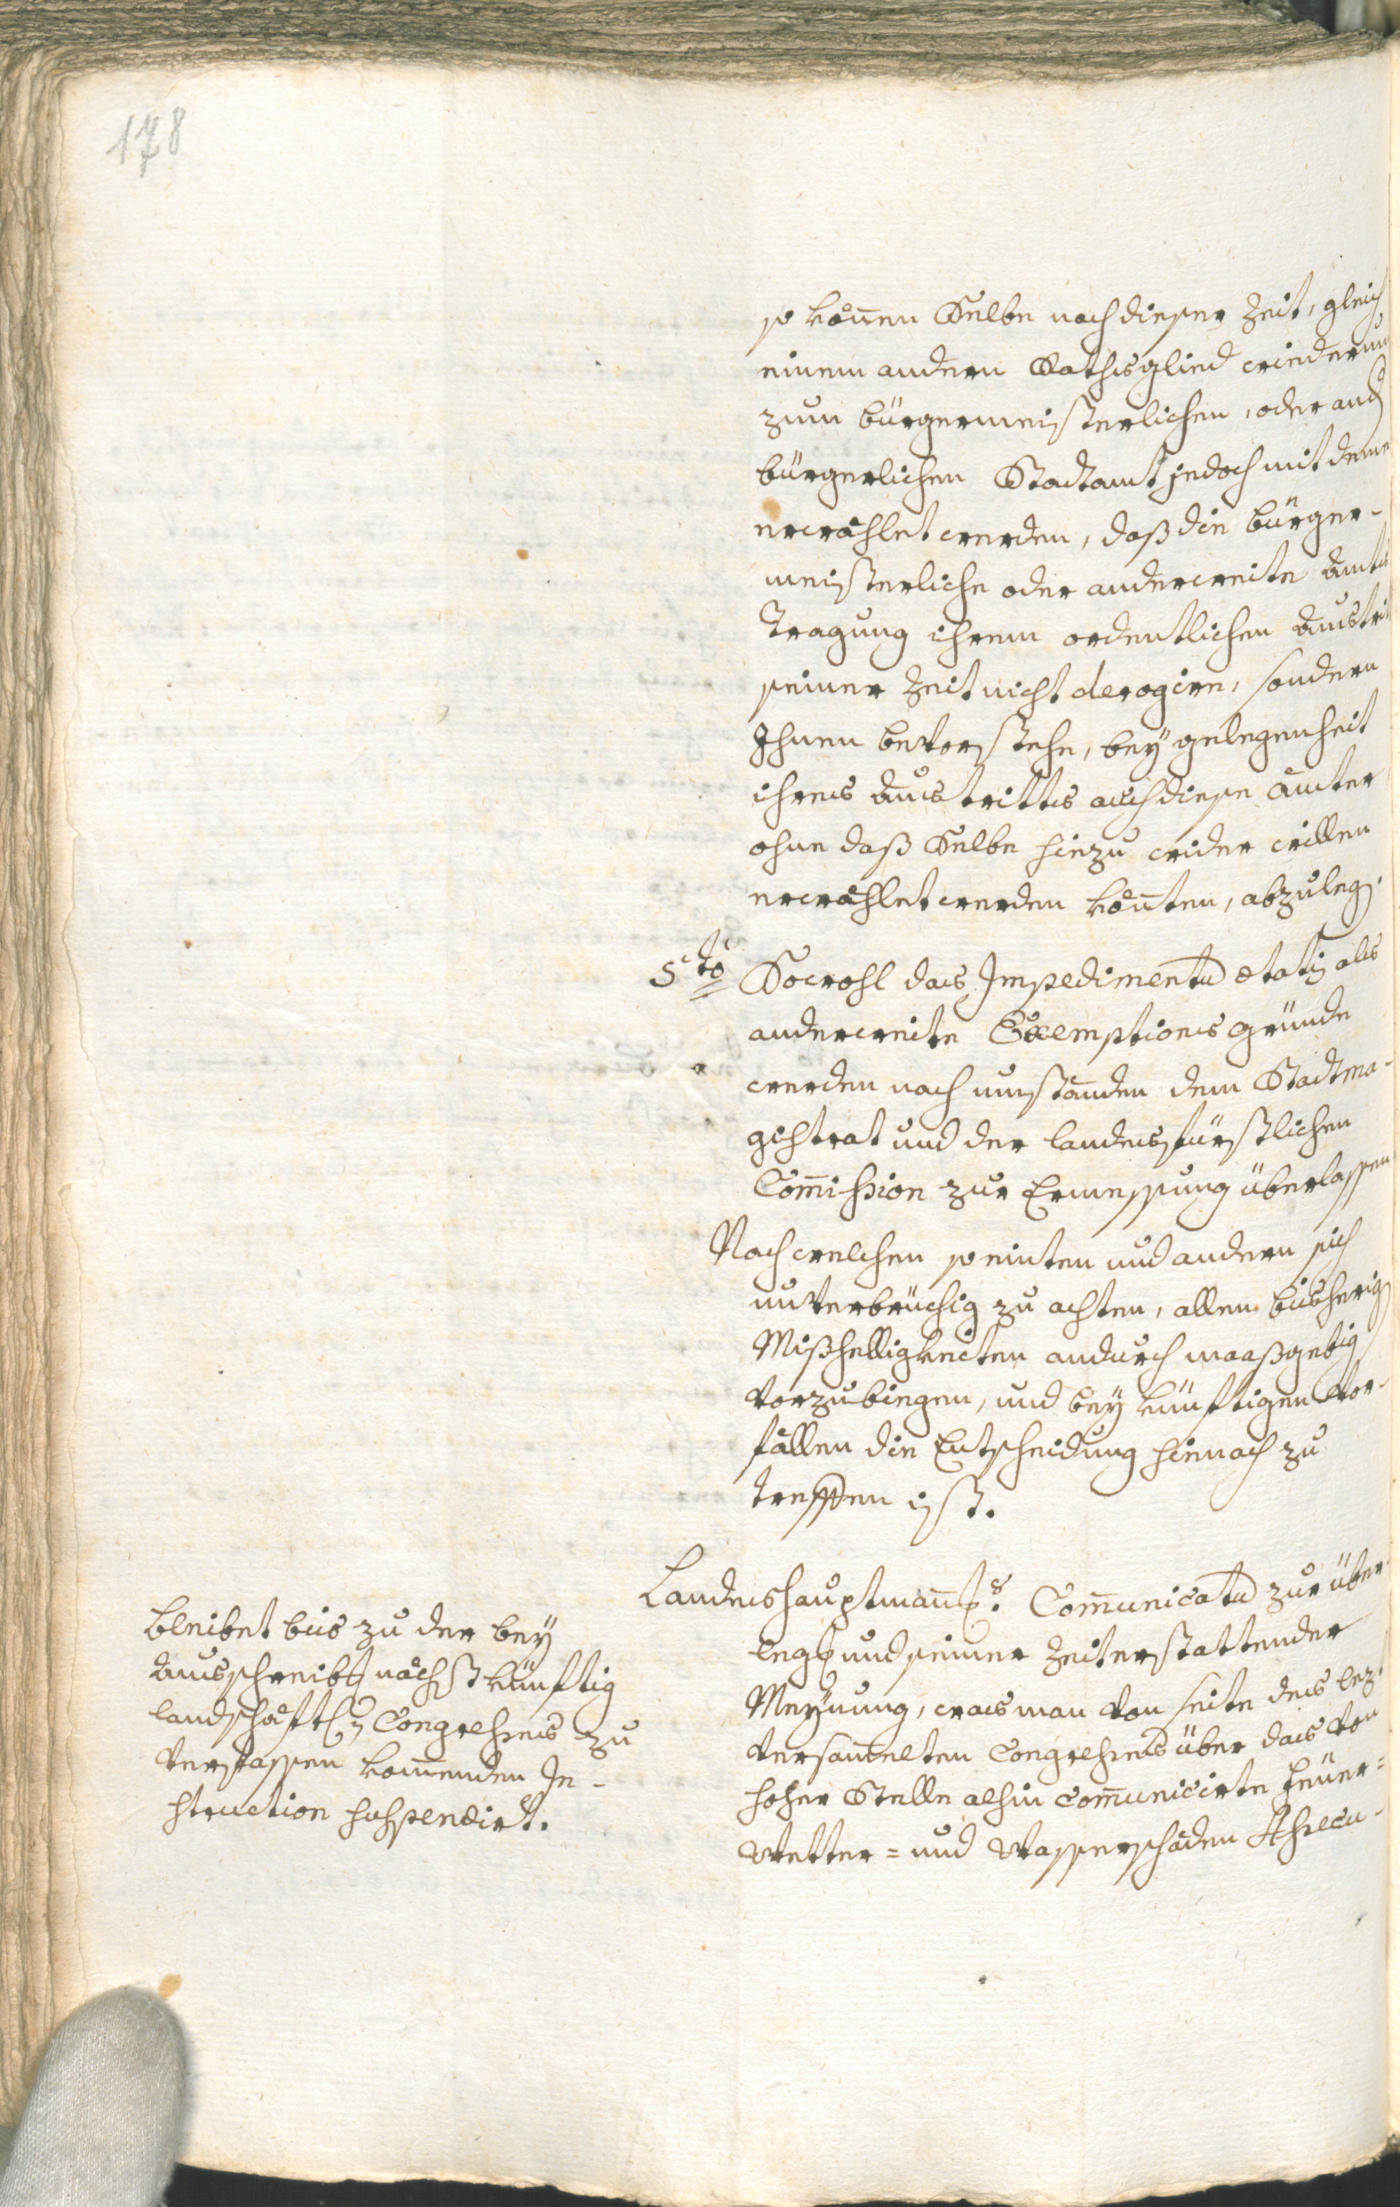 178
so können Selbe nach dieser Zeit, gleich
einem andern Rathsglied wiederum
zum bürgermeisterlichen, oder and
bürgerlichen Stadtamt jedoch mit deme
erwählet werden, daß die bürger-
meisterliche oder anderweite Amts
Tragung ihrem ordentlichen Austrit
seiner Zeit nicht derogire, sondern
Ihnen bevorstehe, bey gelegenheit
ihres Austritts auch diese ämter
ohne daß Selbe hiezu wider willen
erwählet werden könten, abzuleg.
5to Sowohl das Impedimentu ætatis als
anderweite Exemptions gründe
werden nach umständen dem Stadtma-
gistrat und der landesfürstlichen
Com̄ission zur Ermessung überlassen
Nach welchen so einten und andern sich
unverbrüchig zu achten, allen bisherig
Mißhelligkeiten andurch maaßgebig
vorzubiegen, und bey künftigen Vor-
fällen die Entscheidung hienach zu
treffen ist.
Landeshauptman̄s. Com̄unicatu zur über
leg und seiner Zeit erstattender
Meynung, was man von seite des lez
versam̄elten Congresses über das von
hoher Stelle alhin com̄unicirte Feuer=
Wetter= und Wasserschäden Assecu-
bleibet bis zu der bey
Ausschreib nächst künftig
landschäftl. Congresses zu
verfassen kom̄enden In-
struction suspendirt.